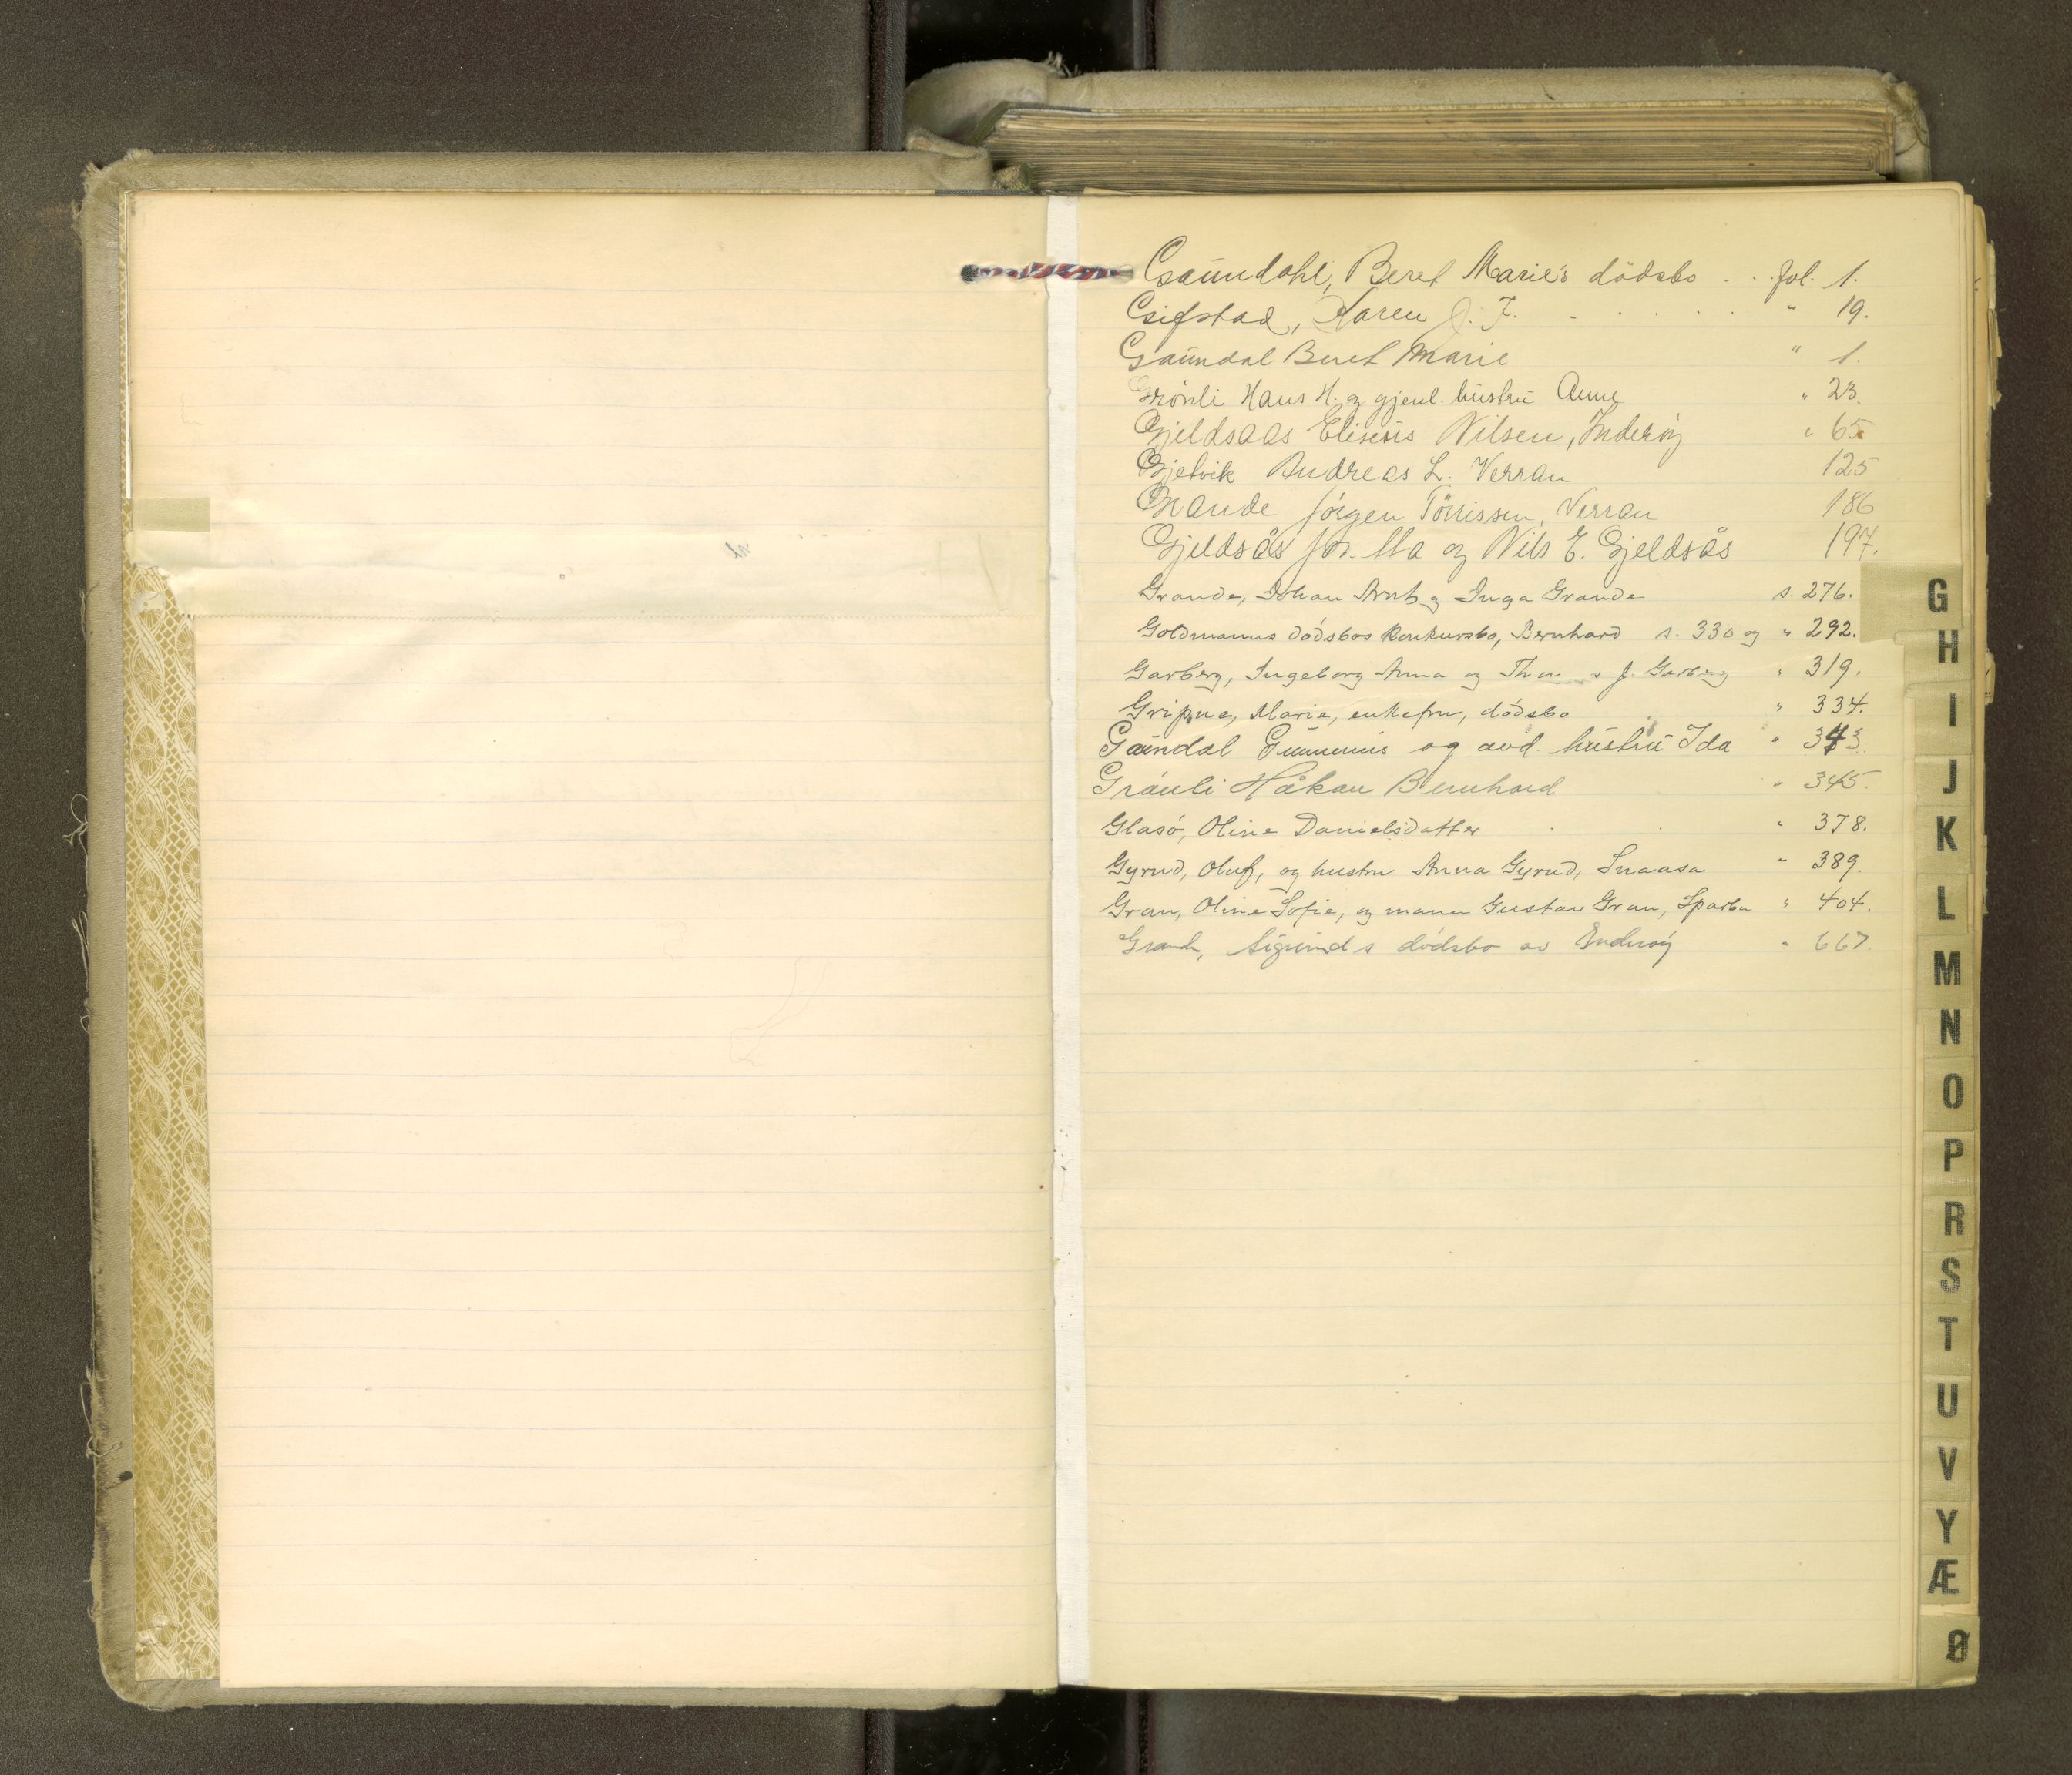 Gaundahl, Beret Marie's dödsbo . . fol. 1.
Gifstad, Karen J. F. . . . . . " 19.
Gaundal Beret Marie " 1.
Grönli Hans H. og gjenl. hustru Anne " 23.
Gjeldsaas Eliseus Nilsen, Inderöy " 65.
Gjetvik Andreas L. Verran 125
Grande Jörgen Törrissen, Verran 186
Gjeldsås og Nils E. Gjeldsås 197.
Grande, Johan Arnt og Inga Grande s. 276.
Goldmanns dödsbos konkursbo, Bernhard s. 330 og " 292.
Garberg, Ingeborg Anna og J. Garberg " 319.
Gripne, Marie, enkefru, dödsbo " 334.
Gaundal Gunnerius og avd. hustru Ida " 343.
Grånli Håkon Bernhard " 345.
Glasö, Oline Danielsdatter . . " 378.
Gyrud, Oluf, og hustru Anna Gyrud, Snaasa " 389.
Gran, Oline Sofie, og mann Gustav Gran, Sparbu " 404.
Grande, Sigurd s dödsbo av Inderöy " 667.
G
H
I
J
K
L
M
N
O
P
R
S
T
U
V
Y
Æ
Ø